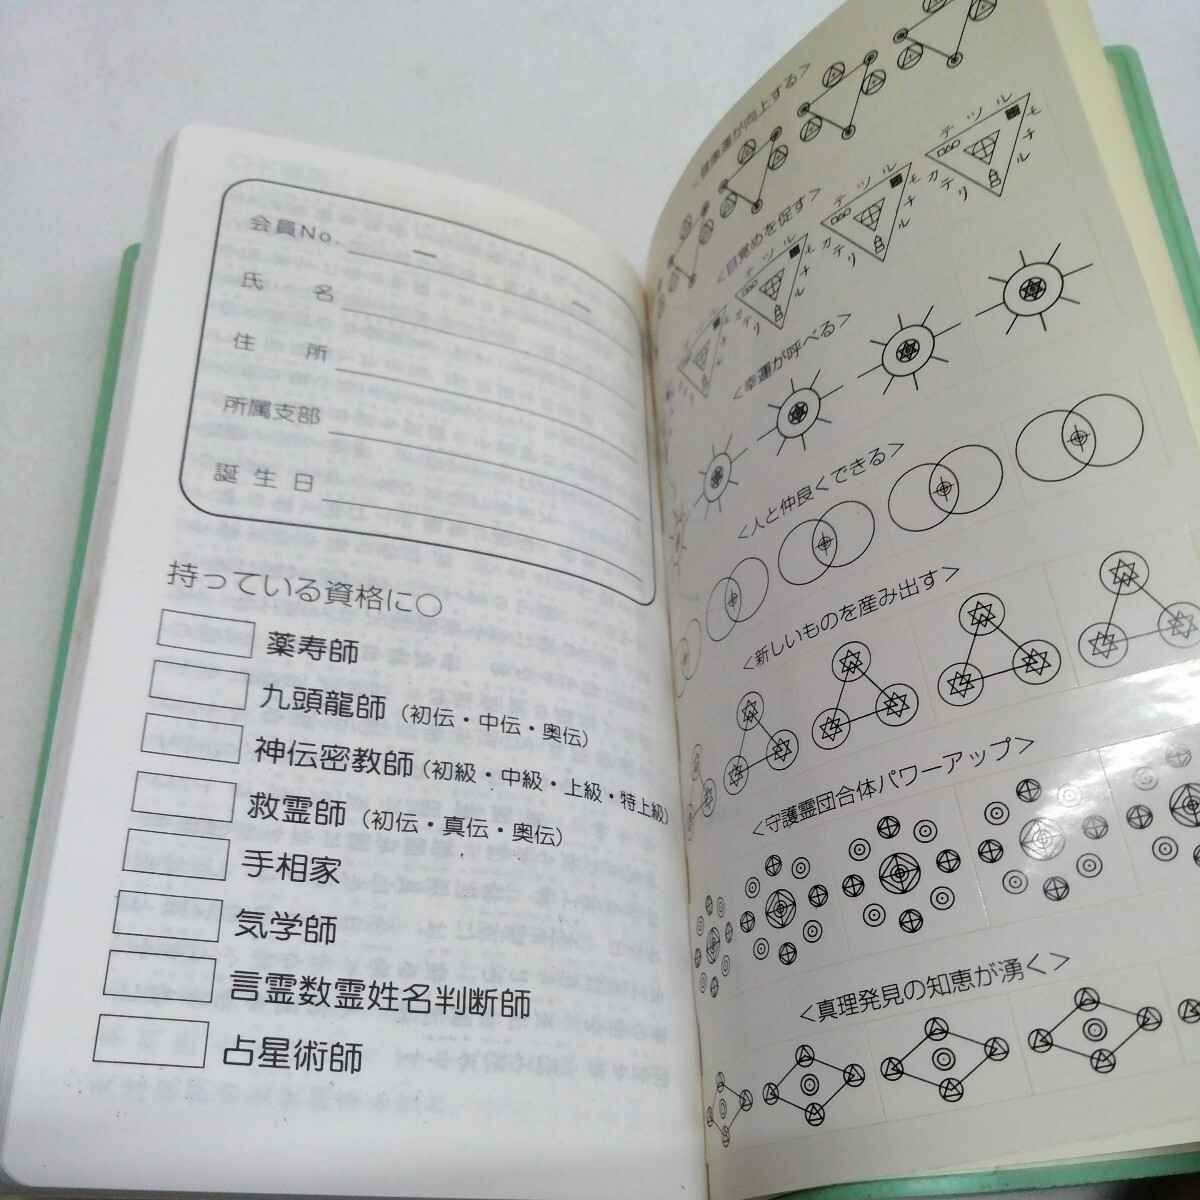 会員No.
氏　名
住　所
所属支部
誕生日
持っている資格に○
薬寿師
九頭龍師（初伝・中伝・奥伝）
神伝密教師（初級・中級・上級・特上級）
救霊師（初伝・真伝・奥伝）
手相家
気学師
言霊数霊姓名判断師
占星術師
＜健康運が向上する＞
＜目覚めを促す＞
テツル
モチル
カテリ
テツル
モチル
カテリ
テツル
モチル
カテリ
＜幸運が呼べる＞
＜人と仲良くできる＞
＜新しいものを産み出す＞
＜守護霊団合体パワーアップ＞
＜真理発見の知恵が湧く＞